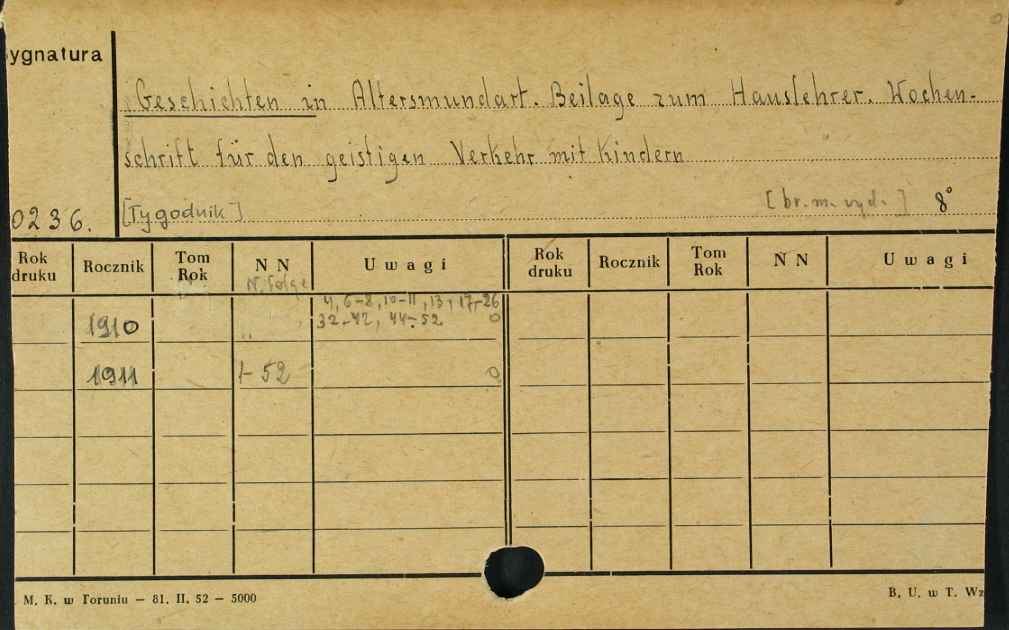 ygnatura
Geschichten in Altersmundart. Beilage zum Hauslehrer. Wochen-
schrift für den geistigen Verkehr mit Kindern
0236. [Tygodnik] [br. m. wyd.] 8°
Rok druku Rocznik Tom Rok N N Uwagi Rok druku Rocznik Tom Rok N N Uwagi
N. Folge 4, 6-8, 10-11, 13, 17-26
1910 32-42, 44-52 0
1911 1-52 0
M. K. w Toruniu — 81. II. 52 — 5000 B. U. w T. Wz